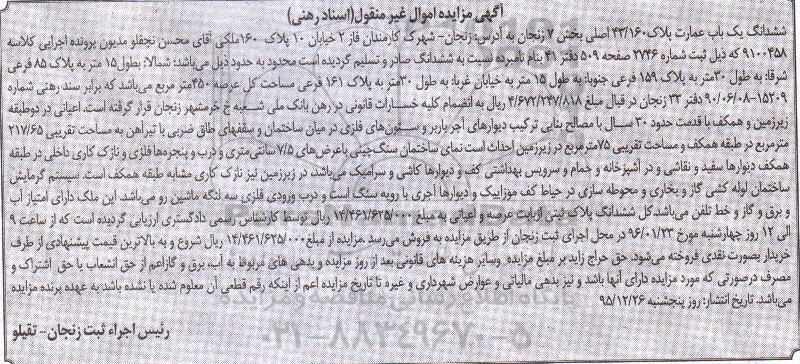 آگهی مزایده اموال غیر منقول(اسناد رهنی)
ششدانگ یک باب عمارت پلاک۴۳/۱۶۰ اصلی بخش ۷ زنجان به آدرس: زنجان- شهرک کارمندان فاز ۲ خیابان ۱۰ پلاک ۱۶۰ملکی آقای محسن نجفلو مدیون پرونده اجرایی کلاسه
۹۱۰۰۴۵۸ که ذیل ثبت شماره ۳۷۴۶ صفحه ۵۰۹ دفتر ۴۱ بنام نامبرده نسبت به ششدانگ صادر و تسلیم گردیده است محدود به حدود ذیل می‌باشد: شمالا: بطول۱۵ متر به پلاک ۸۵ فرعی
شرقا: به طول ۳۰متر به پلاک ۱۵۹ فرعی جنوبا: به طول ۱۵ متر به خیابان غربا: به طول ۳۰متر به پلاک ۱۶۱ فرعی مساحت کل عرصه ۴۵۰متر مربع می‌باشد که برابر سند رهنی شماره
۱۵۲۰۹-۹۰/۰۶/۰۸ دفتر ۳۳ زنجان در قبال مبلغ ۴/۶۷۲/۲۴۷/۸۱۸ ریال به انضمام کلیه خسارات قانونی در رهن بانک ملی شعبه خ خرمشهر زنجان قرار گرفته است. اعیانی در دوطبقه
زیرزمین و همکف با قدمت حدود ۳۰ سال با مصالح بنایی ترکیب دیوارهای آجرباربر و ستون‌های فلزی در میان ساختمان و سقفهای طاق ضربی با تیرآهن به مساحت تقریبی ۲۱۷/۶۵
مترمربع در طبقه همکف و مساحت تقریبی ۷۵مترمربع در زیرزمین احداث است نمای ساختمان سنگ‌چینی باعرض‌های ۷/۵ سانتی‌متری و درب و پنجره‌ها فلزی و نازک کاری داخلی در طبقه
همکف دیوارها سفید و نقاشی و در آشپزخانه و حمام و سرویس بهداشتی کف و دیوارها کاشی و سرامیک می‌باشد، در زیرزمین نیز نازک کاری مشابه طبقه همکف است. سیستم گرمایش
ساختمان لوله کشی گاز و بخاری و محوطه سازی در حیاط کف موزاییک و دیوارها آجری با رویه سنگ است و درب ورودی فلزی سه لنگه ماشین رو می‌باشد. این ملک دارای امتیاز آب
و برق و گاز و خط تلفن می‌باشد.کل ششدانگ پلاک ثبتی ازبابت عرصه و اعیانی به مبلغ ۱۴/۴۶۱/۶۲۵/۰۰۰ ریال توسط کارشناس رسمی دادگستری ارزیابی گردیده است که از ساعت ۹
الی ۱۲ روز چهارشنبه مورخ ۹۶/۰۱/۲۳ در محل اجرای ثبت زنجان از طریق مزایده به فروش می‌رسد .مزایده از مبلغ۱۴/۴۶۱/۶۲۵/۰۰۰ ریال شروع و به بالاترین قیمت پیشنهادی از طرف
خریدار بصورت نقدی فروخته می‌شود. حق حراج زاید بر مبلغ مزایده وسایر هزینه های قانونی بعد از روز مزایده و بدهی های مربوط به آب، برق و گازاعم از حق انشعاب یا حق اشتراک و
مصرف درصورتی که مورد مزایده دارای آنها باشد و نیز بدهی مالیاتی و عوارض شهرداری و غیره تا تاریخ مزایده اعم از اینکه رقم قطعی آن معلوم شده یا نشده باشد به عهده برنده مزایده
می‌باشد. تاریخ انتشار: روز پنجشنبه ۹۵/۱۲/۲۶
رئیس اجراء ثبت زنجان- تقیلو
پایگاه اطلاع رسانی مناقصه و مزایده
۰۲۱-۸۸۳۴۹۶۷۰-۵